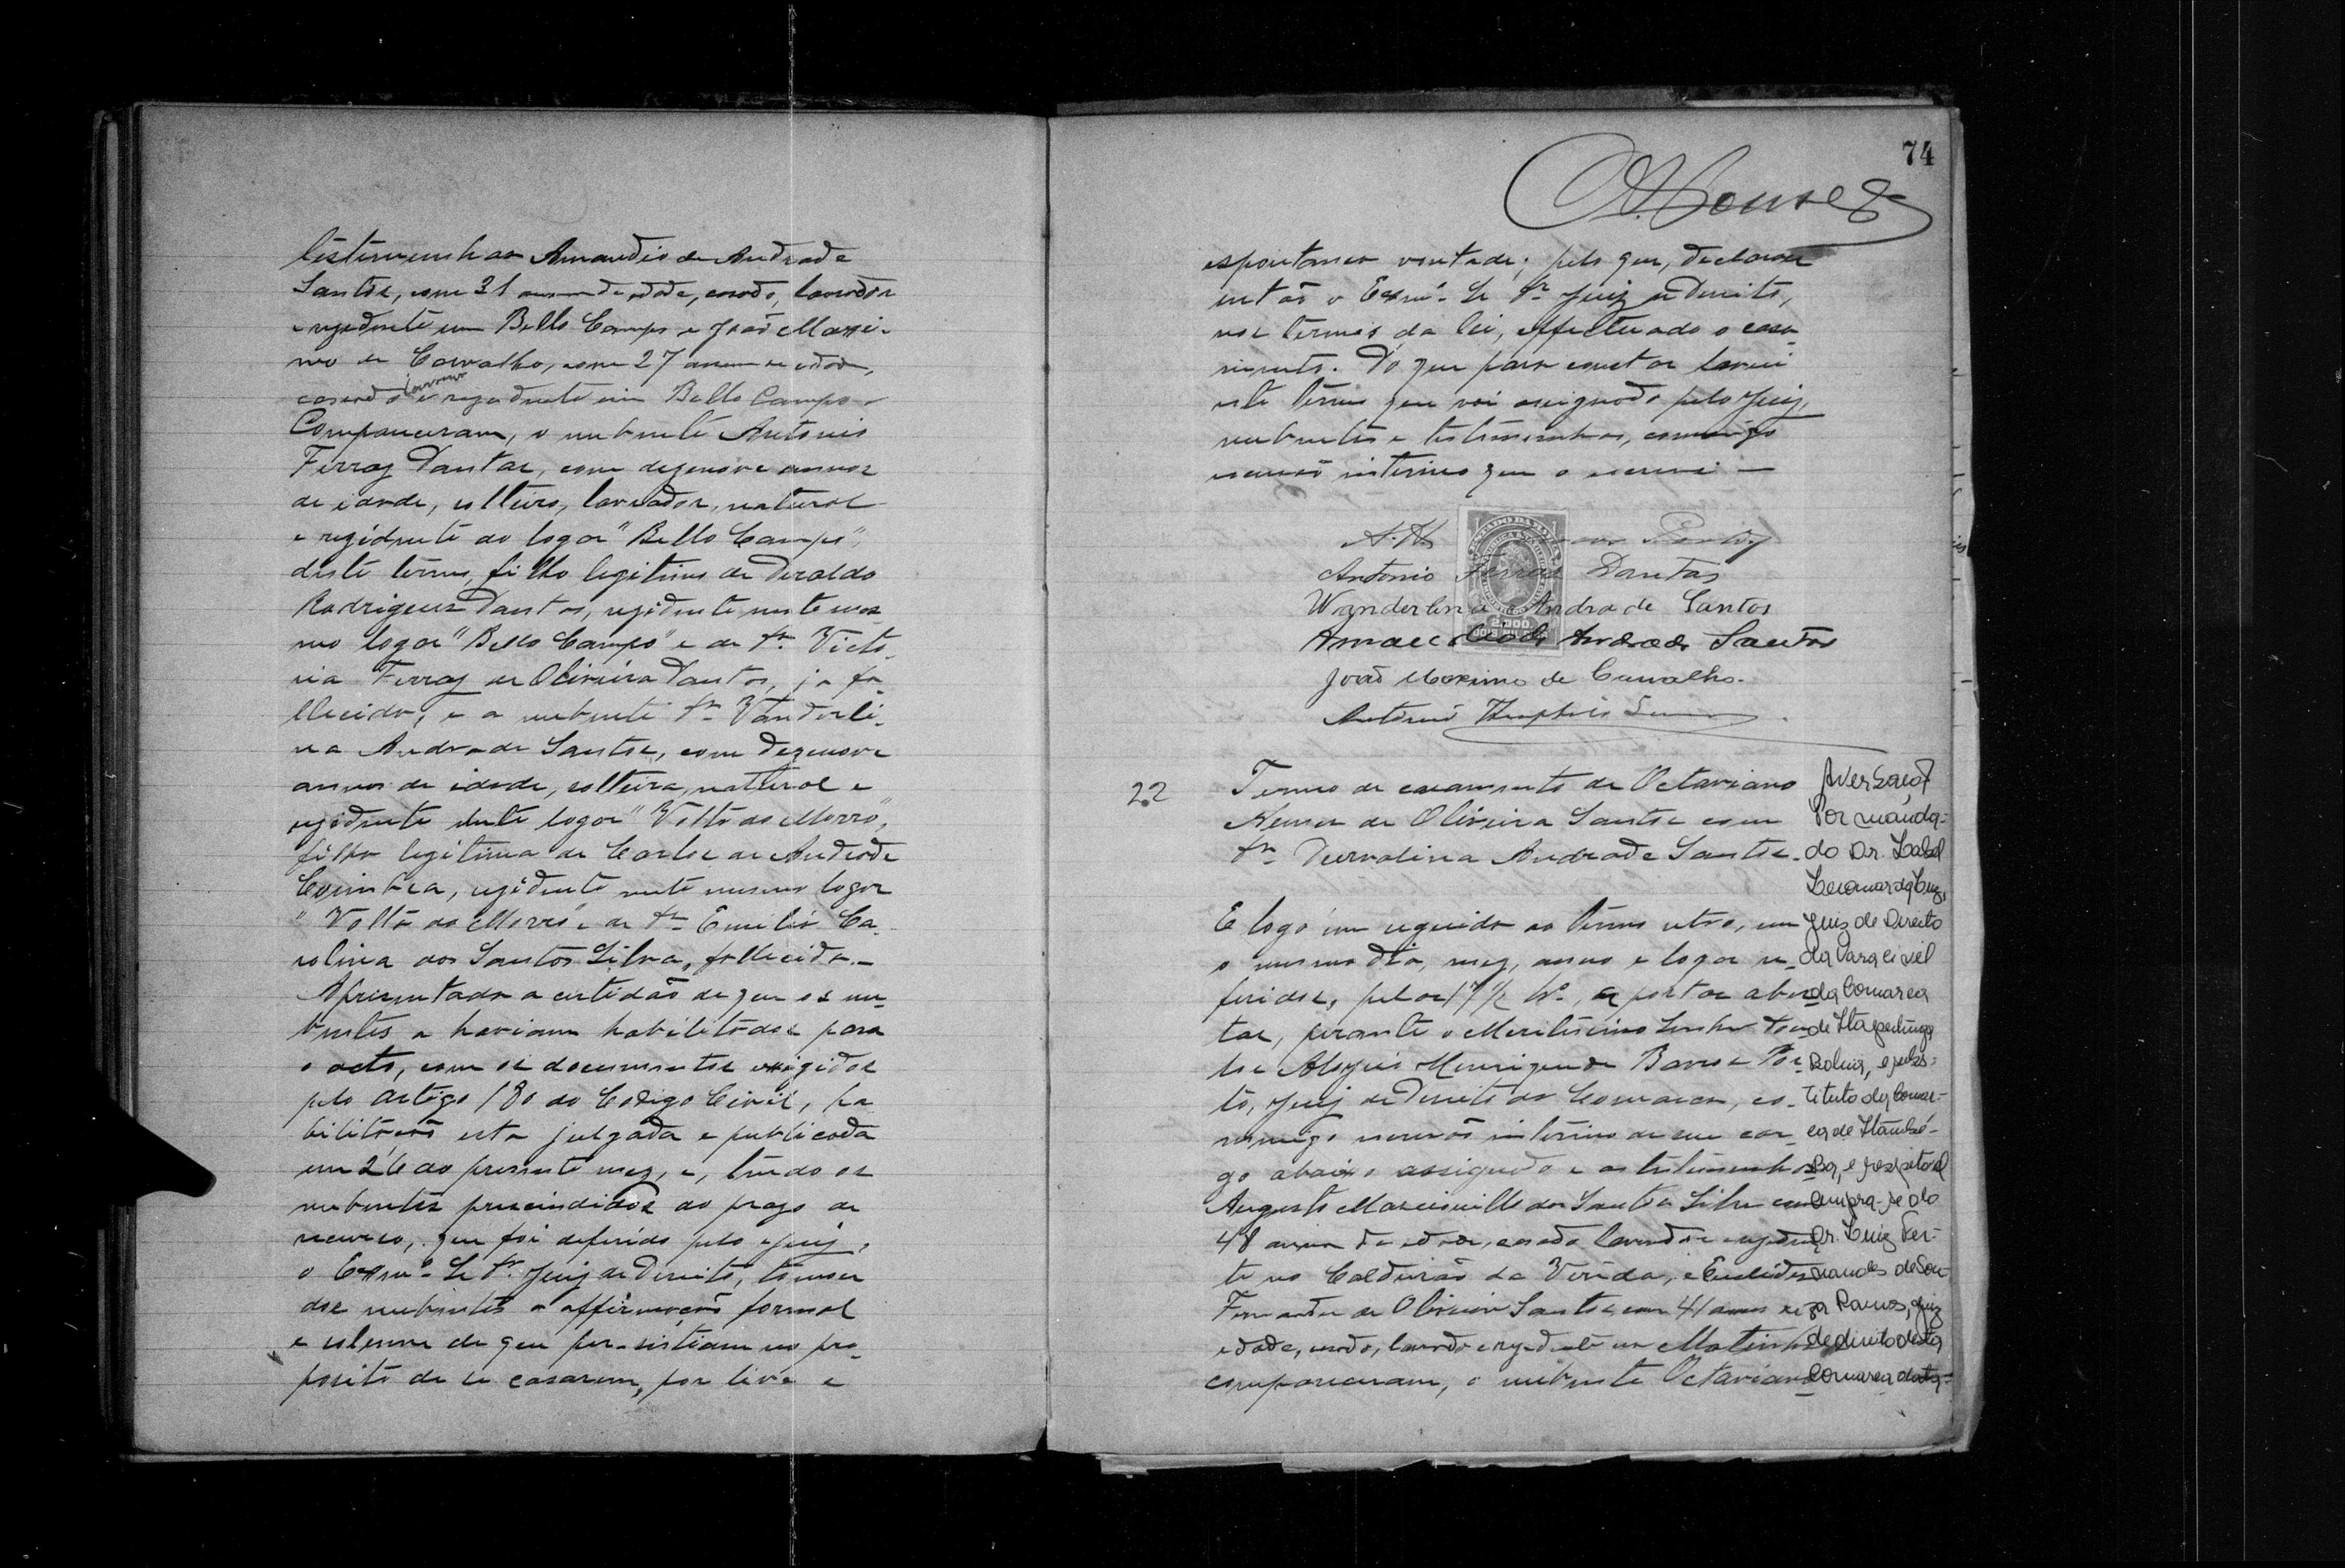 testemunhas Amandio de Andrade
Santos, com 31 annos de edade, casado, lavrador
e rezidente em Bello Campo e João Maxi-
mo de Carvalho, com 27 annos de edade,
casado lavrador e rezidente em Bello Campo -
Compareceram, o nubente Antonio
Ferraz Dantas, com dezenove annos
de idade, solteiro, lavrador, natural
e rezidente ao logar "Bello Campo",
deste termo, filho legitimo de Deraldo
Rodrigues Dantas, rezidente neste mes
mo logar "Bello Campo" e de Dª Victo-
ria Ferraz de Oliveira Dantas, ja fa-
llecida, e a nubente Dª Vanderli-
na Andrade Santos, com dezenove
annos de idade, solteira, natural e
rezidente neste logar "Volta do Morro",
filha legitima de Carlos de Andrade
Coimbra, rezidente neste mesmo logar
"Volta do Morro" e de Dª Emilia Ca-
rolina dos Santos Silva, fallecida.-
Apresentada a certidão de que os nu-
bentes se haviam habilitados para
o acto, com os documentos exigidos
pelo artigo 180 do Codigo Civil, ha
bilitação esta julgada e publicada
em 26 do presente mez, e, tendo os
nubentes prescindidos do prazo de
recurso, que foi deferido pelo Juiz,
o Exmº Sr Dr. Juiz de Direito, tomou
dos nubentes a affirmação formal
e solemne de que persistiam no pro-
posito de se casarem, por livre e
74
espontanea vontade; pelo que, declarou
então o Exmº Sr Dr Juiz de Direito,
nos termos da lei, effectuado o casa-
mento. Do que para constar lavrei
este termo que vai assignado pelo Juiz,
nubentes e testemunhas, comigo
escrivão interino que o escrevi —
Antonio Ferraz Dantas
Wanderlina Andrade Santos
Andrade Santos
João Maximo de Carvalho.
Antonio
22 Termo de casamento de Octaviano
de Oliveira Santos com
Dª Durvalina Andrade Santos.
E logo em seguida ao termo retro, em
o mesmo dia, mez, anno e logar re-
feridos, pelas 17 ½ hs., as portas aber-
tas, perante o Meritissimo Senhor Dou-
tor Aloysio Henrique de Barros Por-
to, Juiz de Direito da Comarca, co-
migo escrivão interino de seu car-
go abaixo assignado e as testemunhas
Augusto dos Santos Silva com
48 annos de edade, casado lavrador e reziden-
te no Caldeirão da Vereda, e Euclides
Fernandes de Oliveira Santos com 41 annos de
edade, casado, lavrador e rezidente na Matinha
compareceram, o nubente Octaviano
Aversação
Por manda-
do Dr. Izabel
da Cruz,
Juiz de Direito
da Vara civel
da Comarca
de Itapetinga
Bahia, e subs-
tituto da Comar-
ca de Itambé-
Ba, e respeitavel
cumpra-se do
Dr. Luiz Fer-
nandes de Sou-
za Ramos, juiz
de direito desta
Comarca